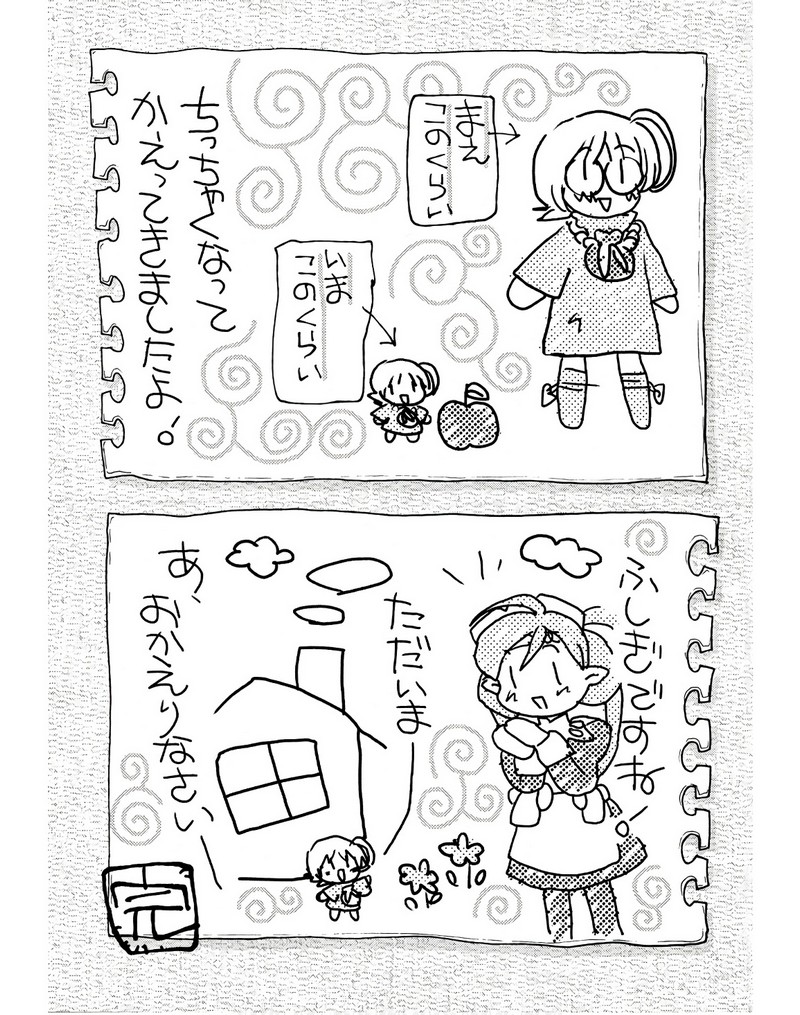 まえ
このくらい
いま
このくらい
ちっちゃくなって
かえってきましたよ!
ふしぎですね!
ただいま
あ、
おかえりなさい
完